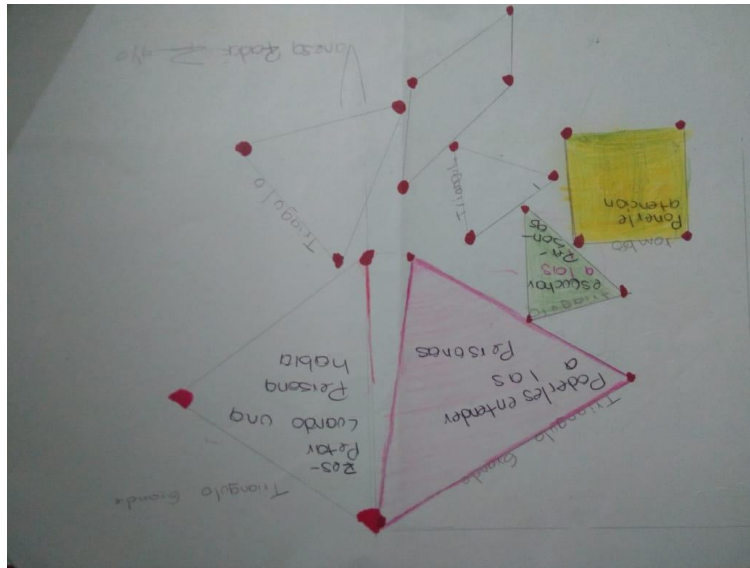 Triangulo Grande
Res-
Petar
cuando una
Persona
habla
Triangulo Grande
Poderles entender
a las
Personas
triangulo
escuchar
a las
Pe-
rson-
as
rombo
Ponerle
atención
Triangulo
Triangulo
Vanesa Rada